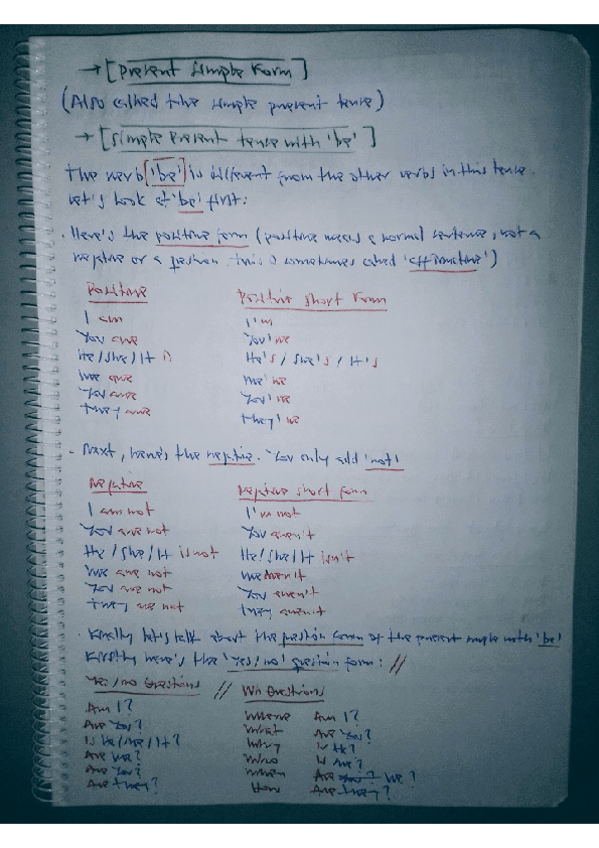 → [Present Simple Form]
(Also called the simple present tense)
→ [Simple Present tense with 'be']
The verb 'be' is different from the other verbs in this tense.
Let's look at 'be' first:
. Here's the positive form (positive means a normal sentence, not a
negative or a question. this is sometimes called 'affirmative')
Positive Positive short Form
I am I'm
You are You're
He/She/It is He's / She's / It's
We are We're
You are You're
They are They're
- Next, here's the negative. You only add 'not'
Negative negative short form
I am not I'm not
You are not You aren't
He/She/It is not He/She/It isn't
We are not We Aren't
You are not You aren't
They are not They aren't
. Finally let's talk about the question form of the present simple with 'be'
Firstly here's the 'yes/no' question form: //
Yes/no Questions // Wh Questions
Am I? Where Am I?
Are You? What Are You?
Is He/She/It? Why Is He?
Are We? Who Is She?
Are You? When Are You? We?
Are they? How Are they?